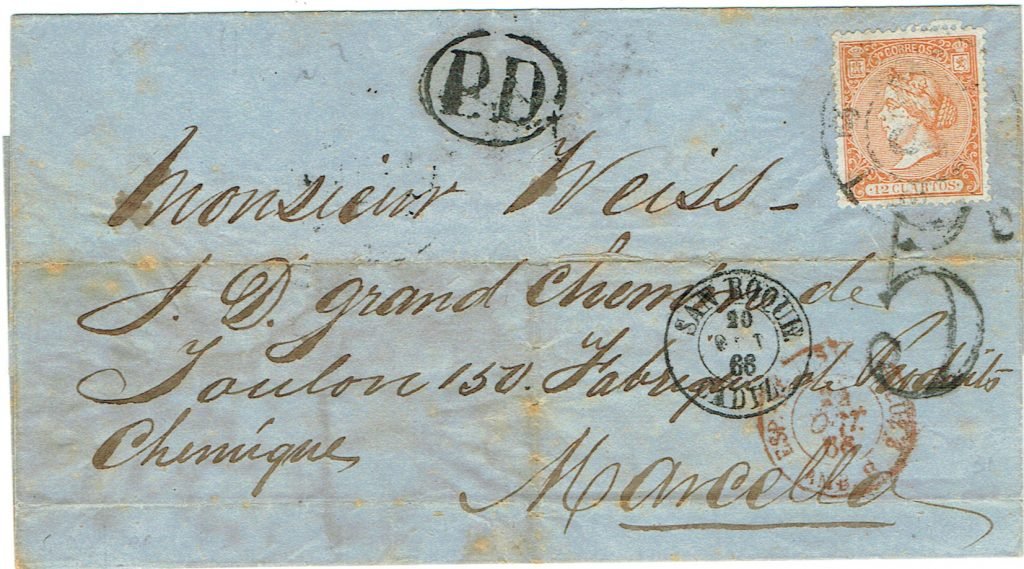 P.D.
CORREOS
12 CUARTOS
Monsieur Weiss
J. D. grand Chemin de
Toulon 150. Fabrique de Produits
Chemique
Marcella
SAN ROQUE
20
OCT
66
CADIZ
5
ESP
22
OCT.
66
AMB